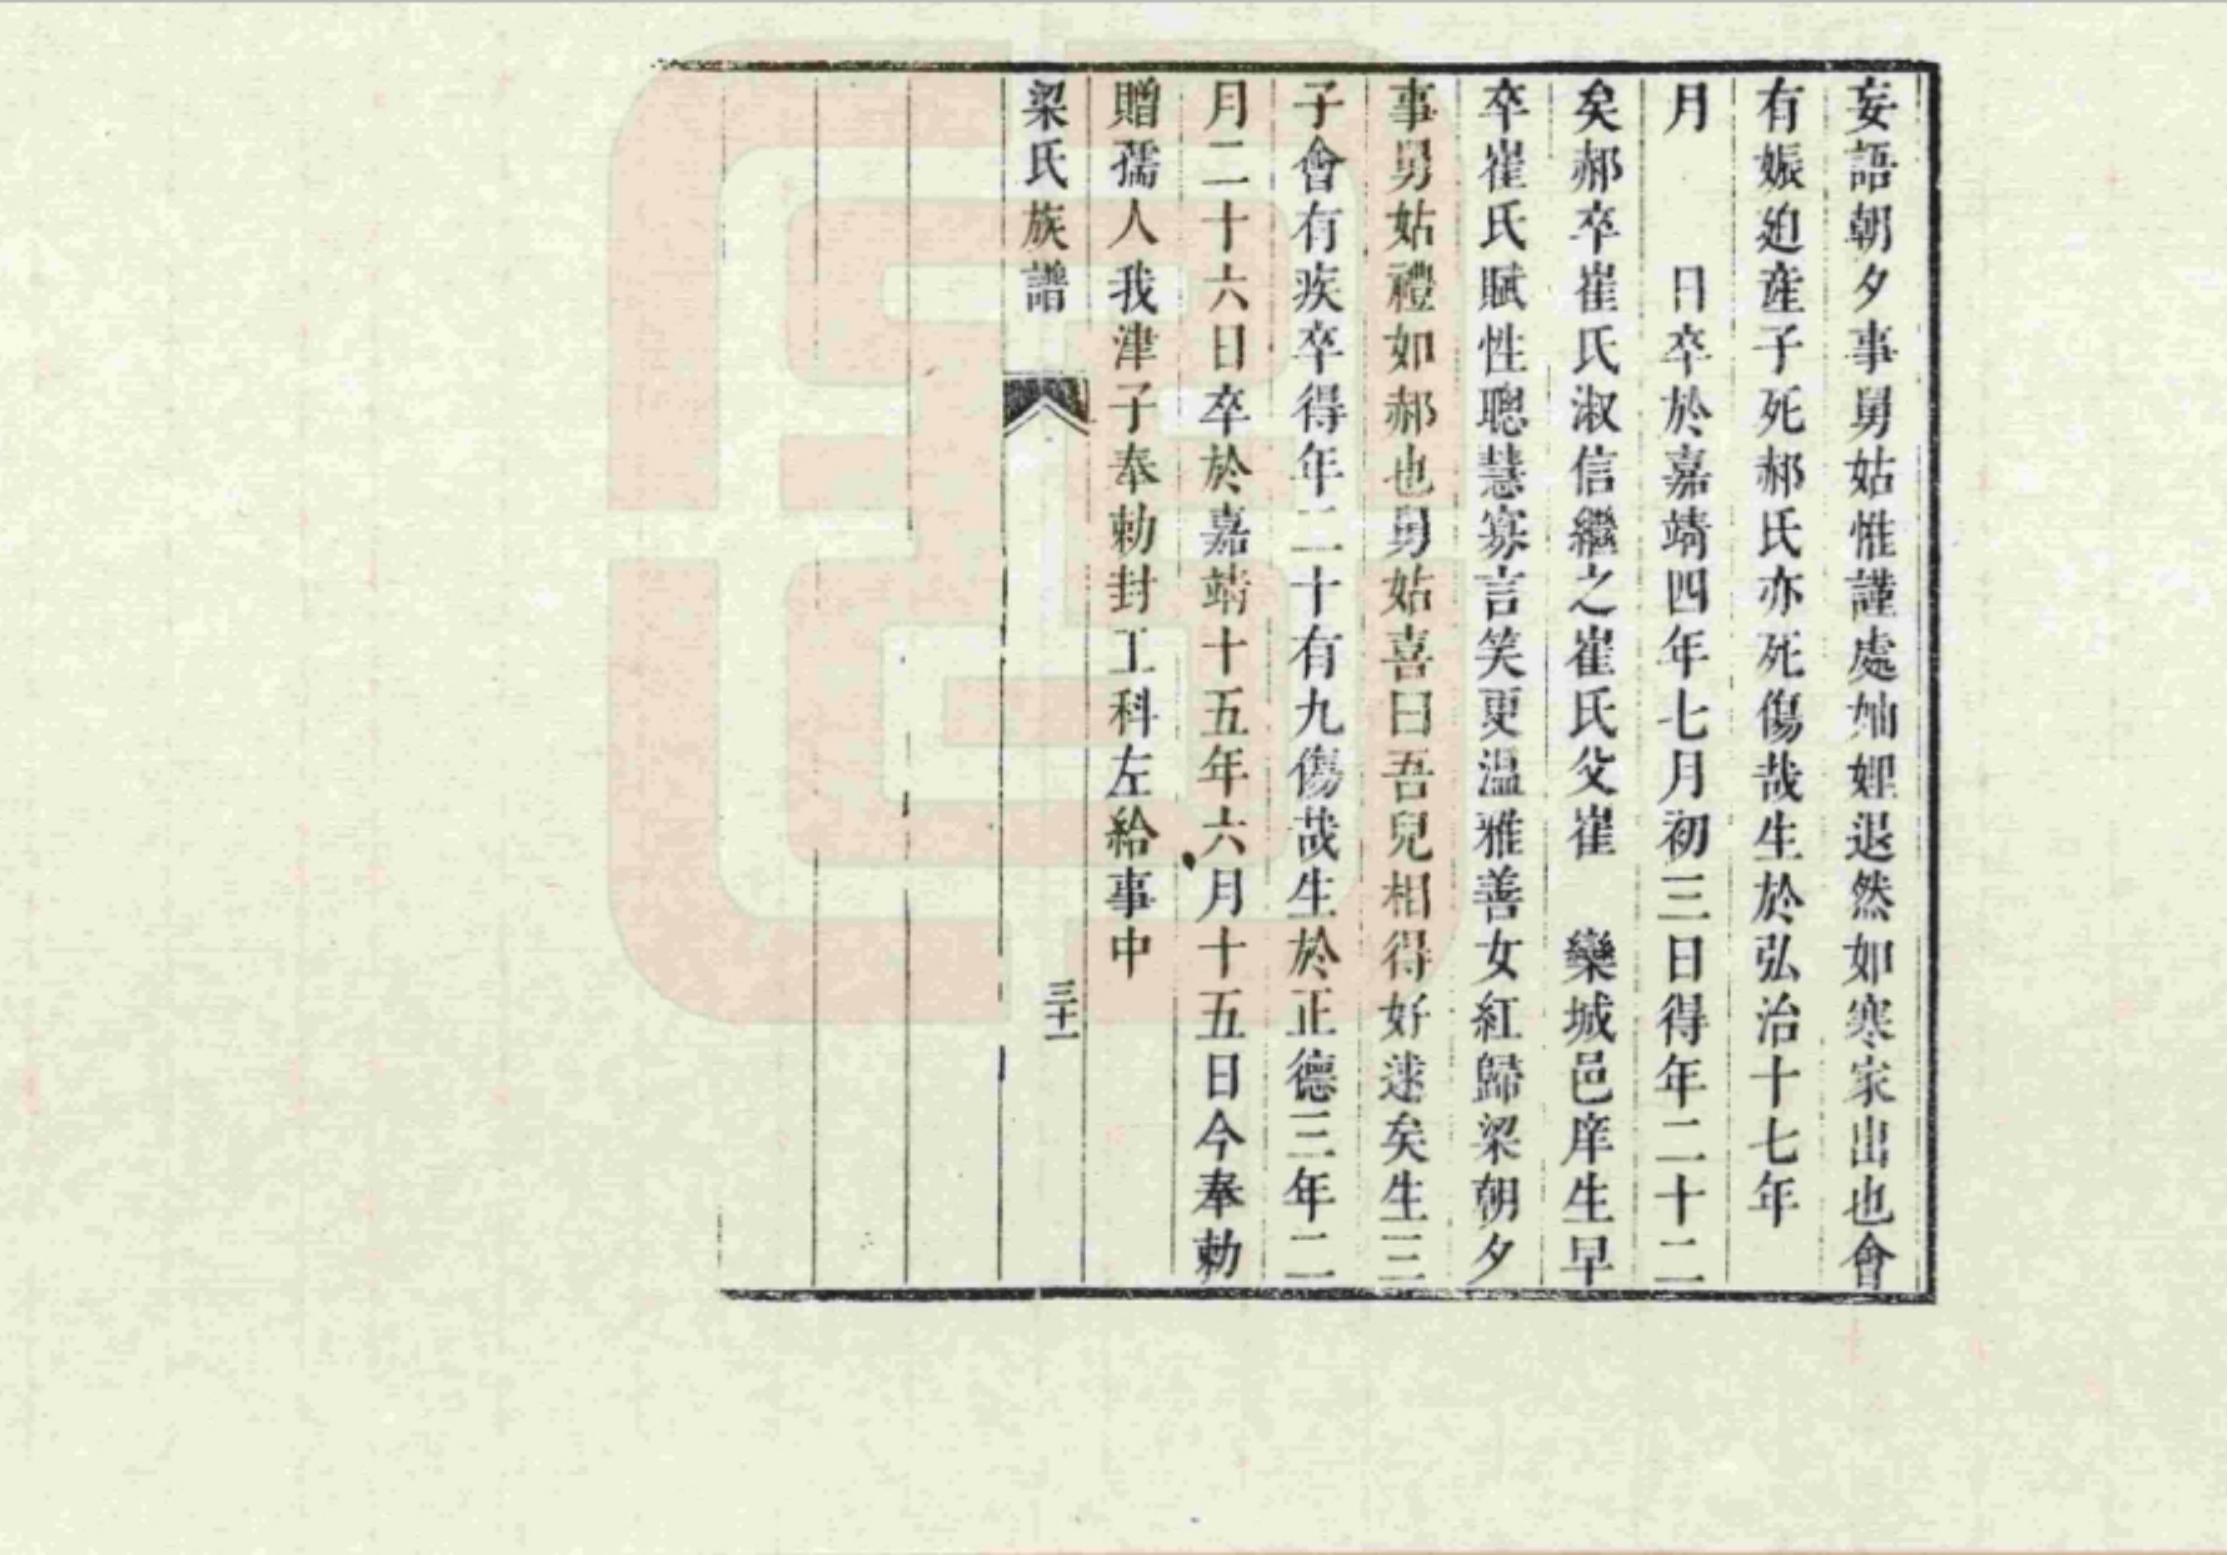 妄語朝夕事舅姑惟謹處妯娌退然如寒家出也會
有娠迫產子死郝氏亦死傷哉生於弘治十七年
月　　日卒於嘉靖四年七月初三日得年二十二
矣郝卒崔氏淑信繼之崔氏父崔　欒城邑庠生早
卒崔氏賦性聰慧寡言笑更溫雅善女紅歸梁朝夕
事舅姑禮如郝也舅姑喜曰吾兒相得好逑矣生三
子會有疾卒得年二十有九傷哉生於正德三年二
月二十六日卒於嘉靖十五年六月十五日今奉勅
贈孺人我津子奉勅封工科左給事中
梁氏族譜
三十一